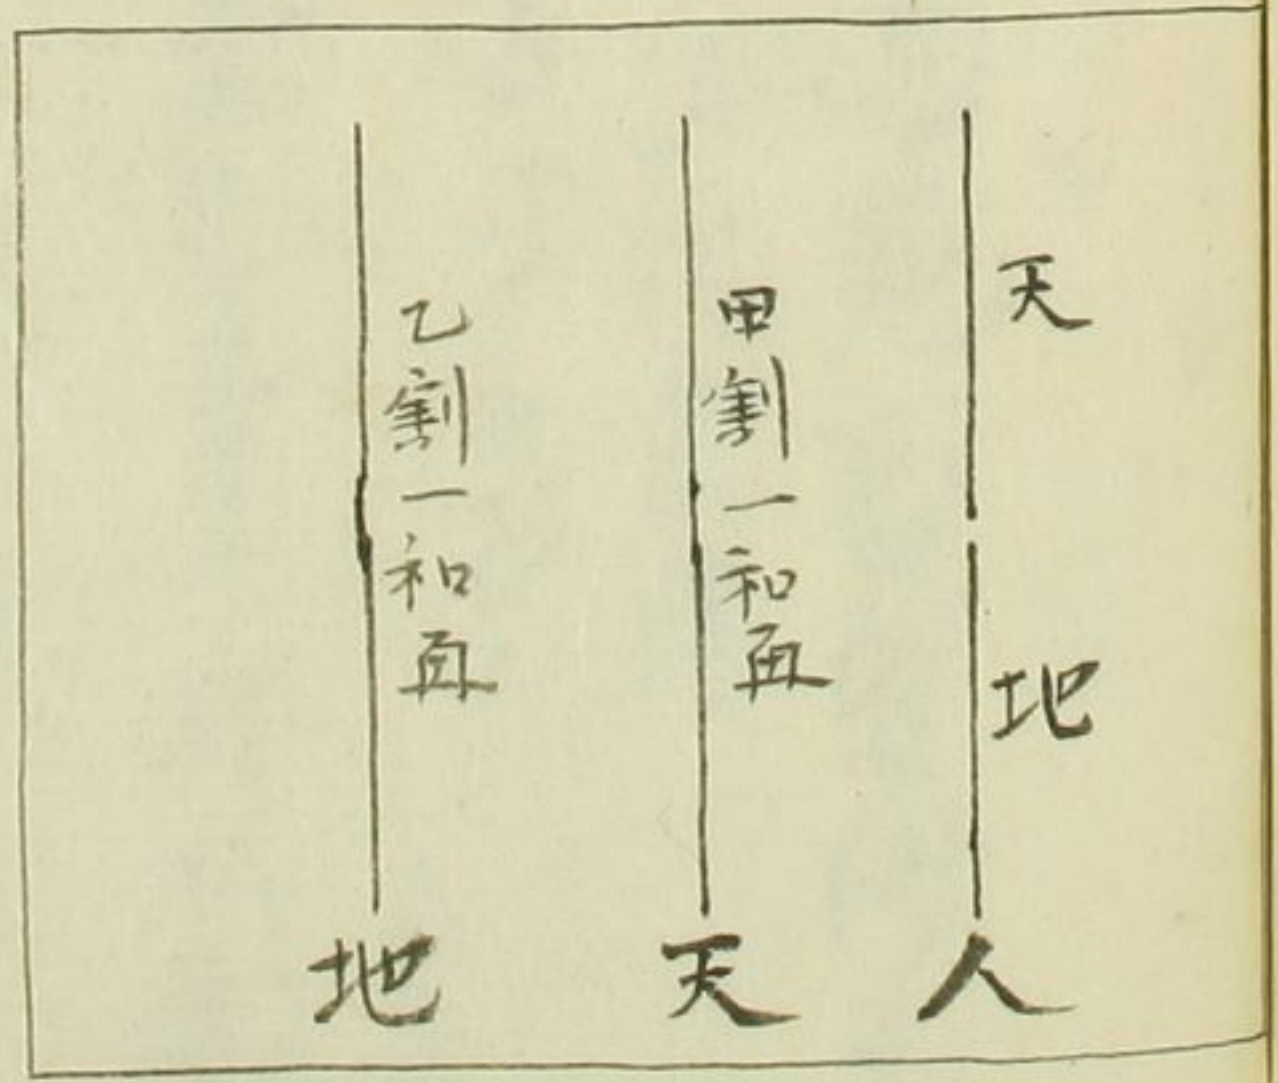 天
地
人
甲割一和再
天
乙割一和再
地